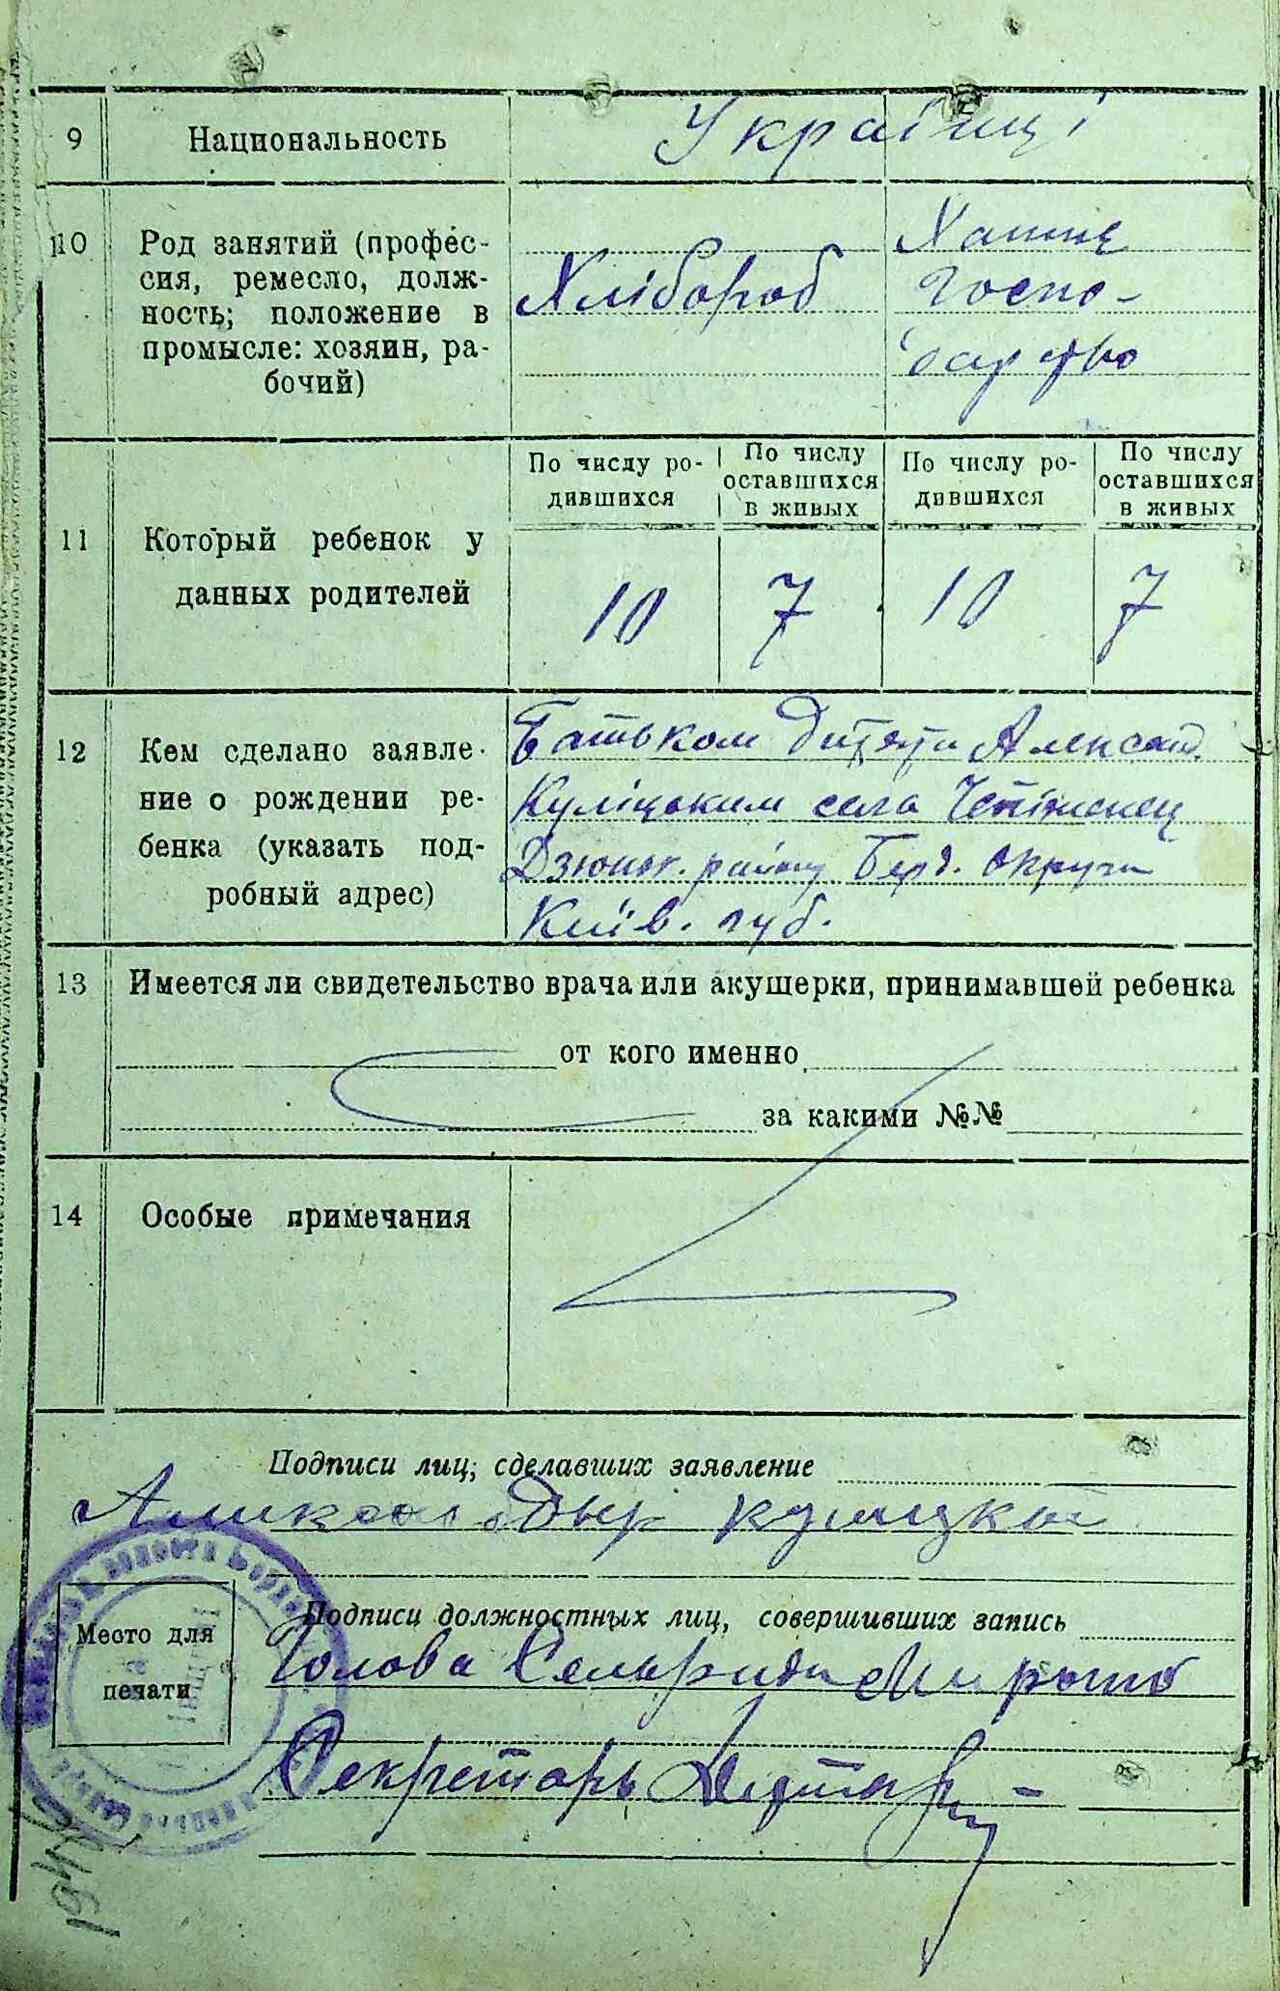 9 Национальность Українці
10 Род занятий (профес-
сия, ремесло, долж-
ность; положение в
промысле: хозяин, ра-
бочий)
Хлібороб
Хатнє
госпо-
дарство
11 Который ребенок у
данных родителей
По числу ро-
дившихся
По числу
оставшихся
в живых
По числу ро-
дившихся
По числу
оставшихся
в живых
10 7 10 7
12 Кем сделано заявле-
ние о рождении ре-
бенка (указать под-
робный адрес)
Батьком дитяти Александ.
Куліцьким села
Дзюньк. району Берд. округи
Київ. губ.
13 Имеется ли свидетельство врача или акушерки, принимавшей ребенка
от кого именно
за какими №№
14 Особые примечания
Подписи лиц, сделавших заявление
Кулицкий
Место для
печати
Подписи должностных лиц, совершивших запись
Голова Сельради
Секретарь